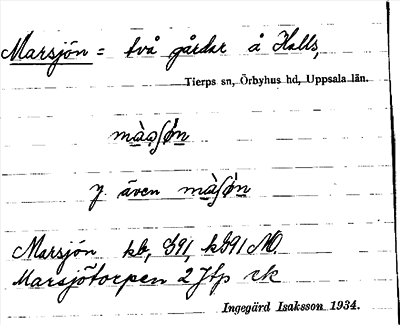 Marsjön = två gårdar å Halls,
Tierps sn, Örbyhus hd, Uppsala län.
màʃǿn
y även màʃǿn
Marsjön kb, G91, kG91 NO.
Marsjötorpen 2 Jfp ek
Ingegärd Isaksson 1934.